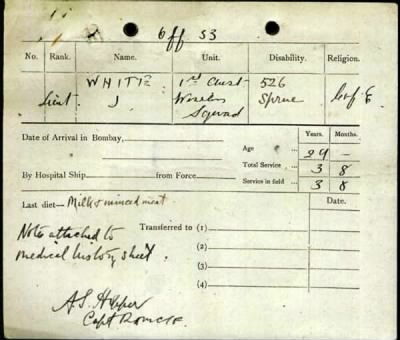 Off 53
No. Rank. Name. Unit. Disability. Religion.
Lieut. WHITE J 1st Aust Wireless Sqwad 526 Sprue C of E
Date of Arrival in Bombay,
Years. Months.
Age 29 —
By Hospital Ship, from Force,
Total Service 3 8
Service in field 3 8
Last diet— Milk & minced meat
Date.
Notes attached to
medical history sheet.
Transferred to (1)
(2)
(3)
(4)
Capt RAMC